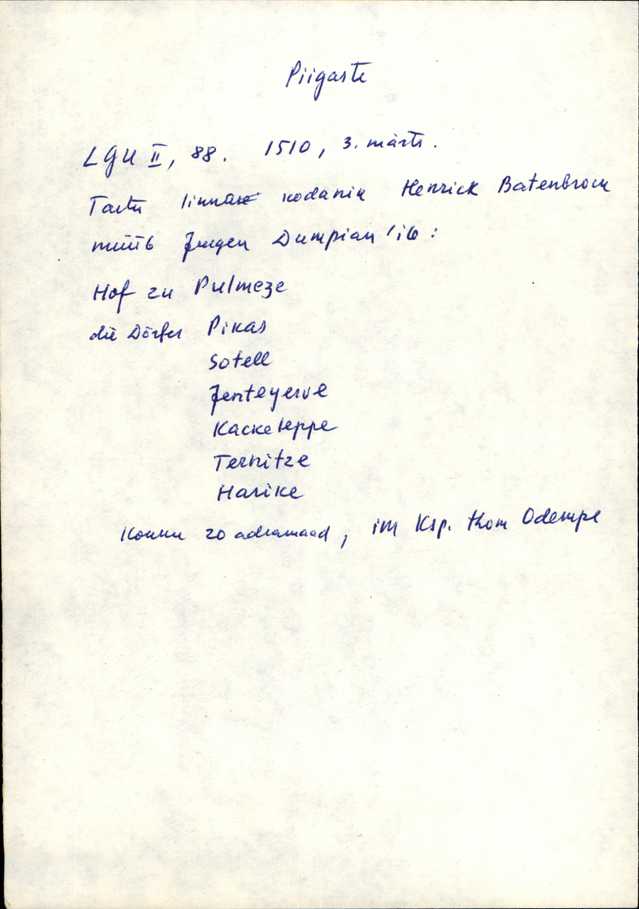 Piigaste
LGU II, 88. 1510, 3. märts.
Tartu linnase kodanik Henrick Batenbrock
müüb Jurgen Dumpian'ile:
Hof zu Pulmeze
die Dörfer Pikas
Sotell
Jenteyerve
Kackeleppe
Ternitze
Harike
Kokku 20 adramaad, im Ksp. thom Odempe